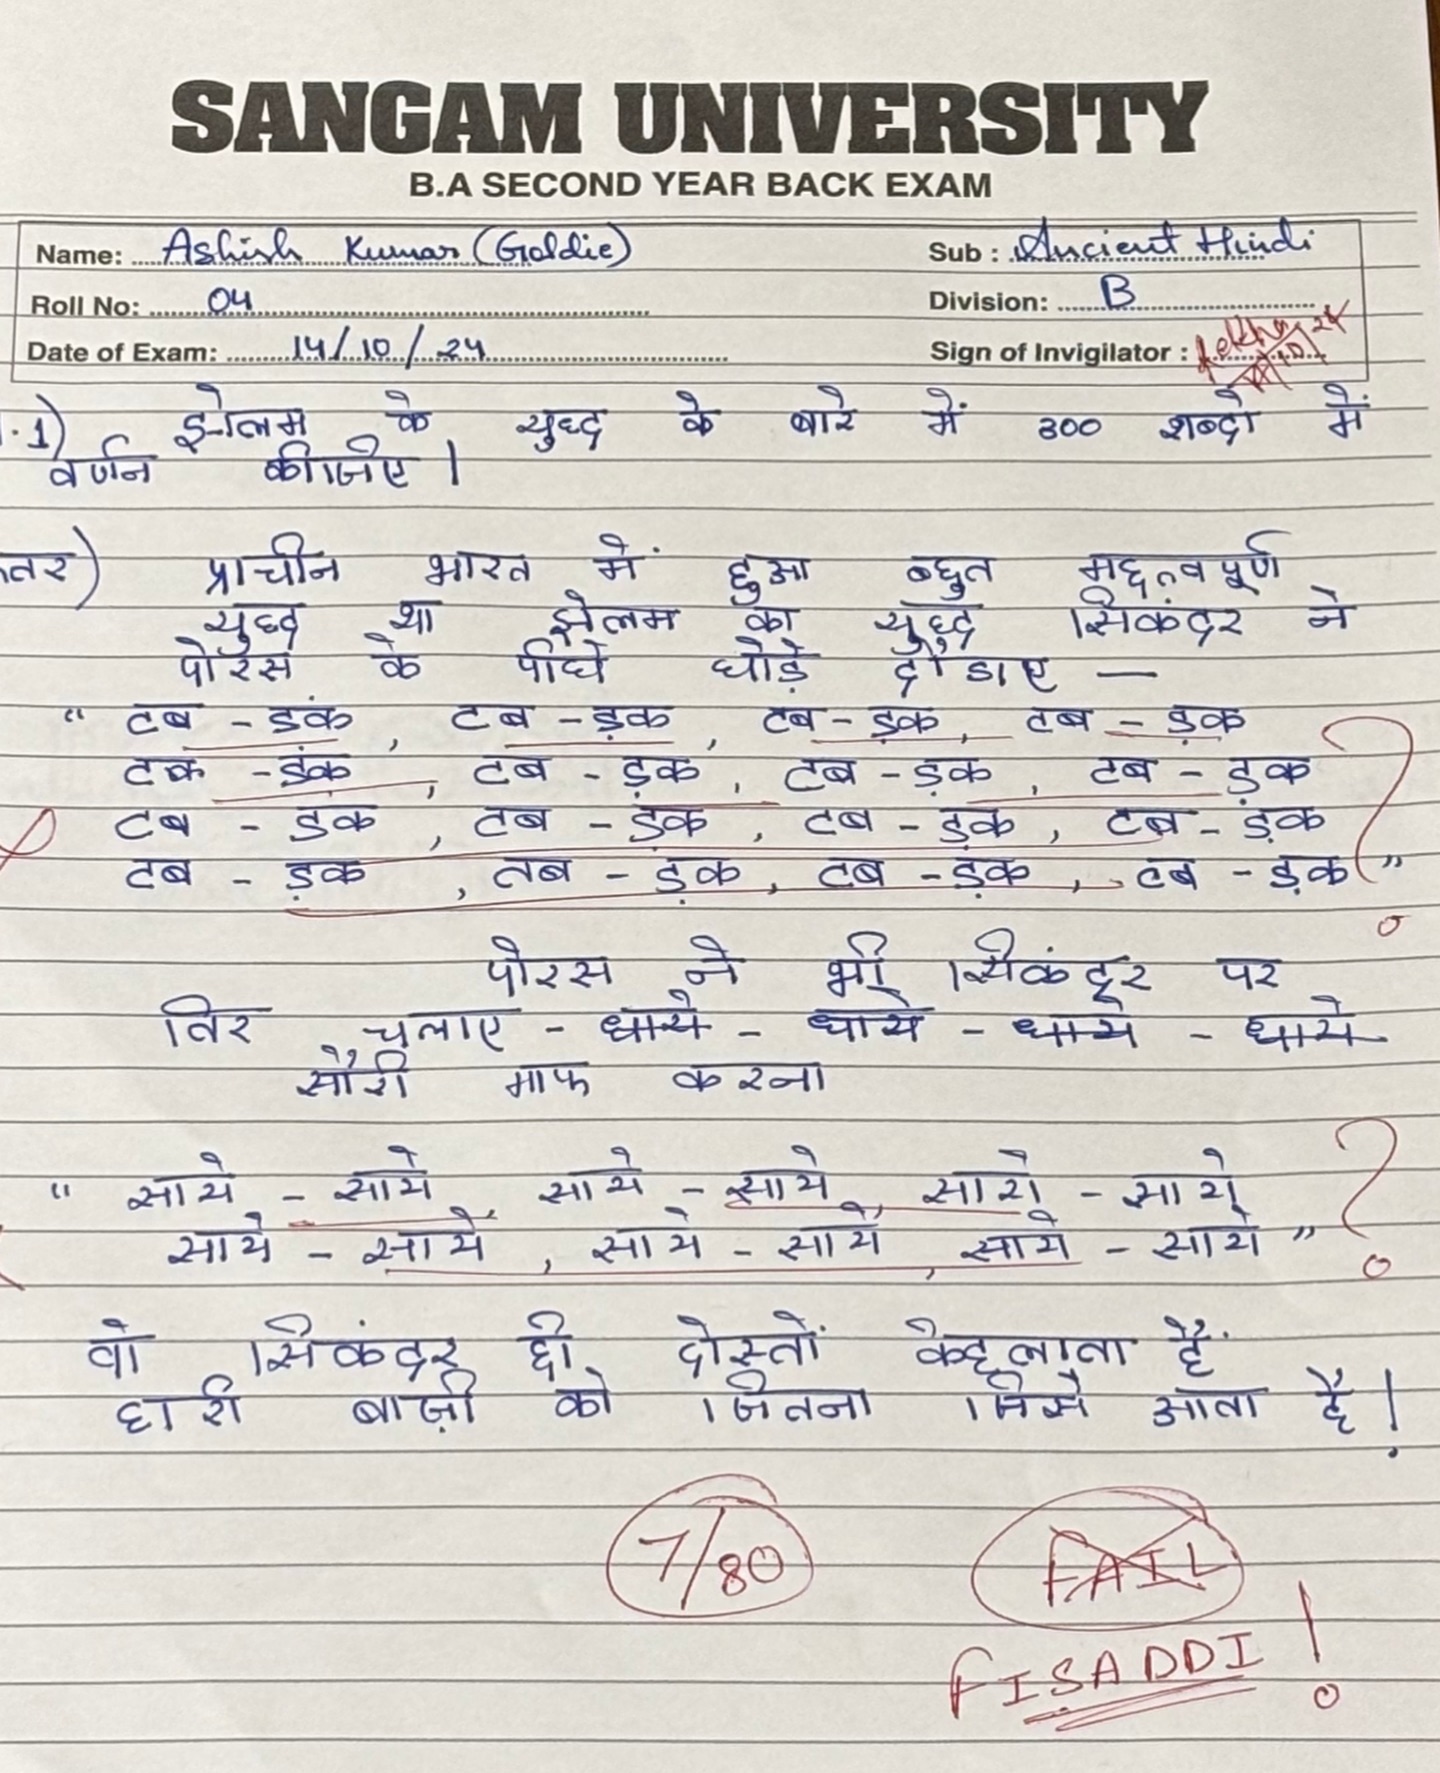 SANGAM UNIVERSITY
B.A SECOND YEAR BACK EXAM
Name: Ashish Kumar (Goldie) Sub : Ancient Hindi
Roll No: 04 Division: B
Date of Exam: 14/10/24 Sign of Invigilator :
.1) झेलम के युध्द के बारे में 300 शब्दो में
वर्णन कीजिए।
त्तर) प्राचीन भारत में हुआ ब्हुत महत्वपूर्ण
युध्द था झेलम का युध्द सिकंदर ने
पोरस के पीछे घोड़े दौडाए —
“ टब - डंक, टब - ड़क, टब - ड़क, टब - ड़क
टक - डंक, टब - ड़क, टब - ड़क, टब - ड़क
टब - डक, टब - ड़क, टब - ड़क, टब - ड़क
टब - ड़क, तब - ड़क, टब - ड़क, टब - ड़क ”
पोरस ने भी सिकंदर पर
तिर चलाए - धाये - धाये - धाये - धाये
सौरी माफ करना
“ साये - साये, साये - साये, साये - साये
साये - साये, साये - साये, साये - साये ”
वो सिकंदर ही दोस्तों केहलाता हैं.
हारी बाज़ी को जितना जिसे आता है!
7/80 FAIL
FISADDI!